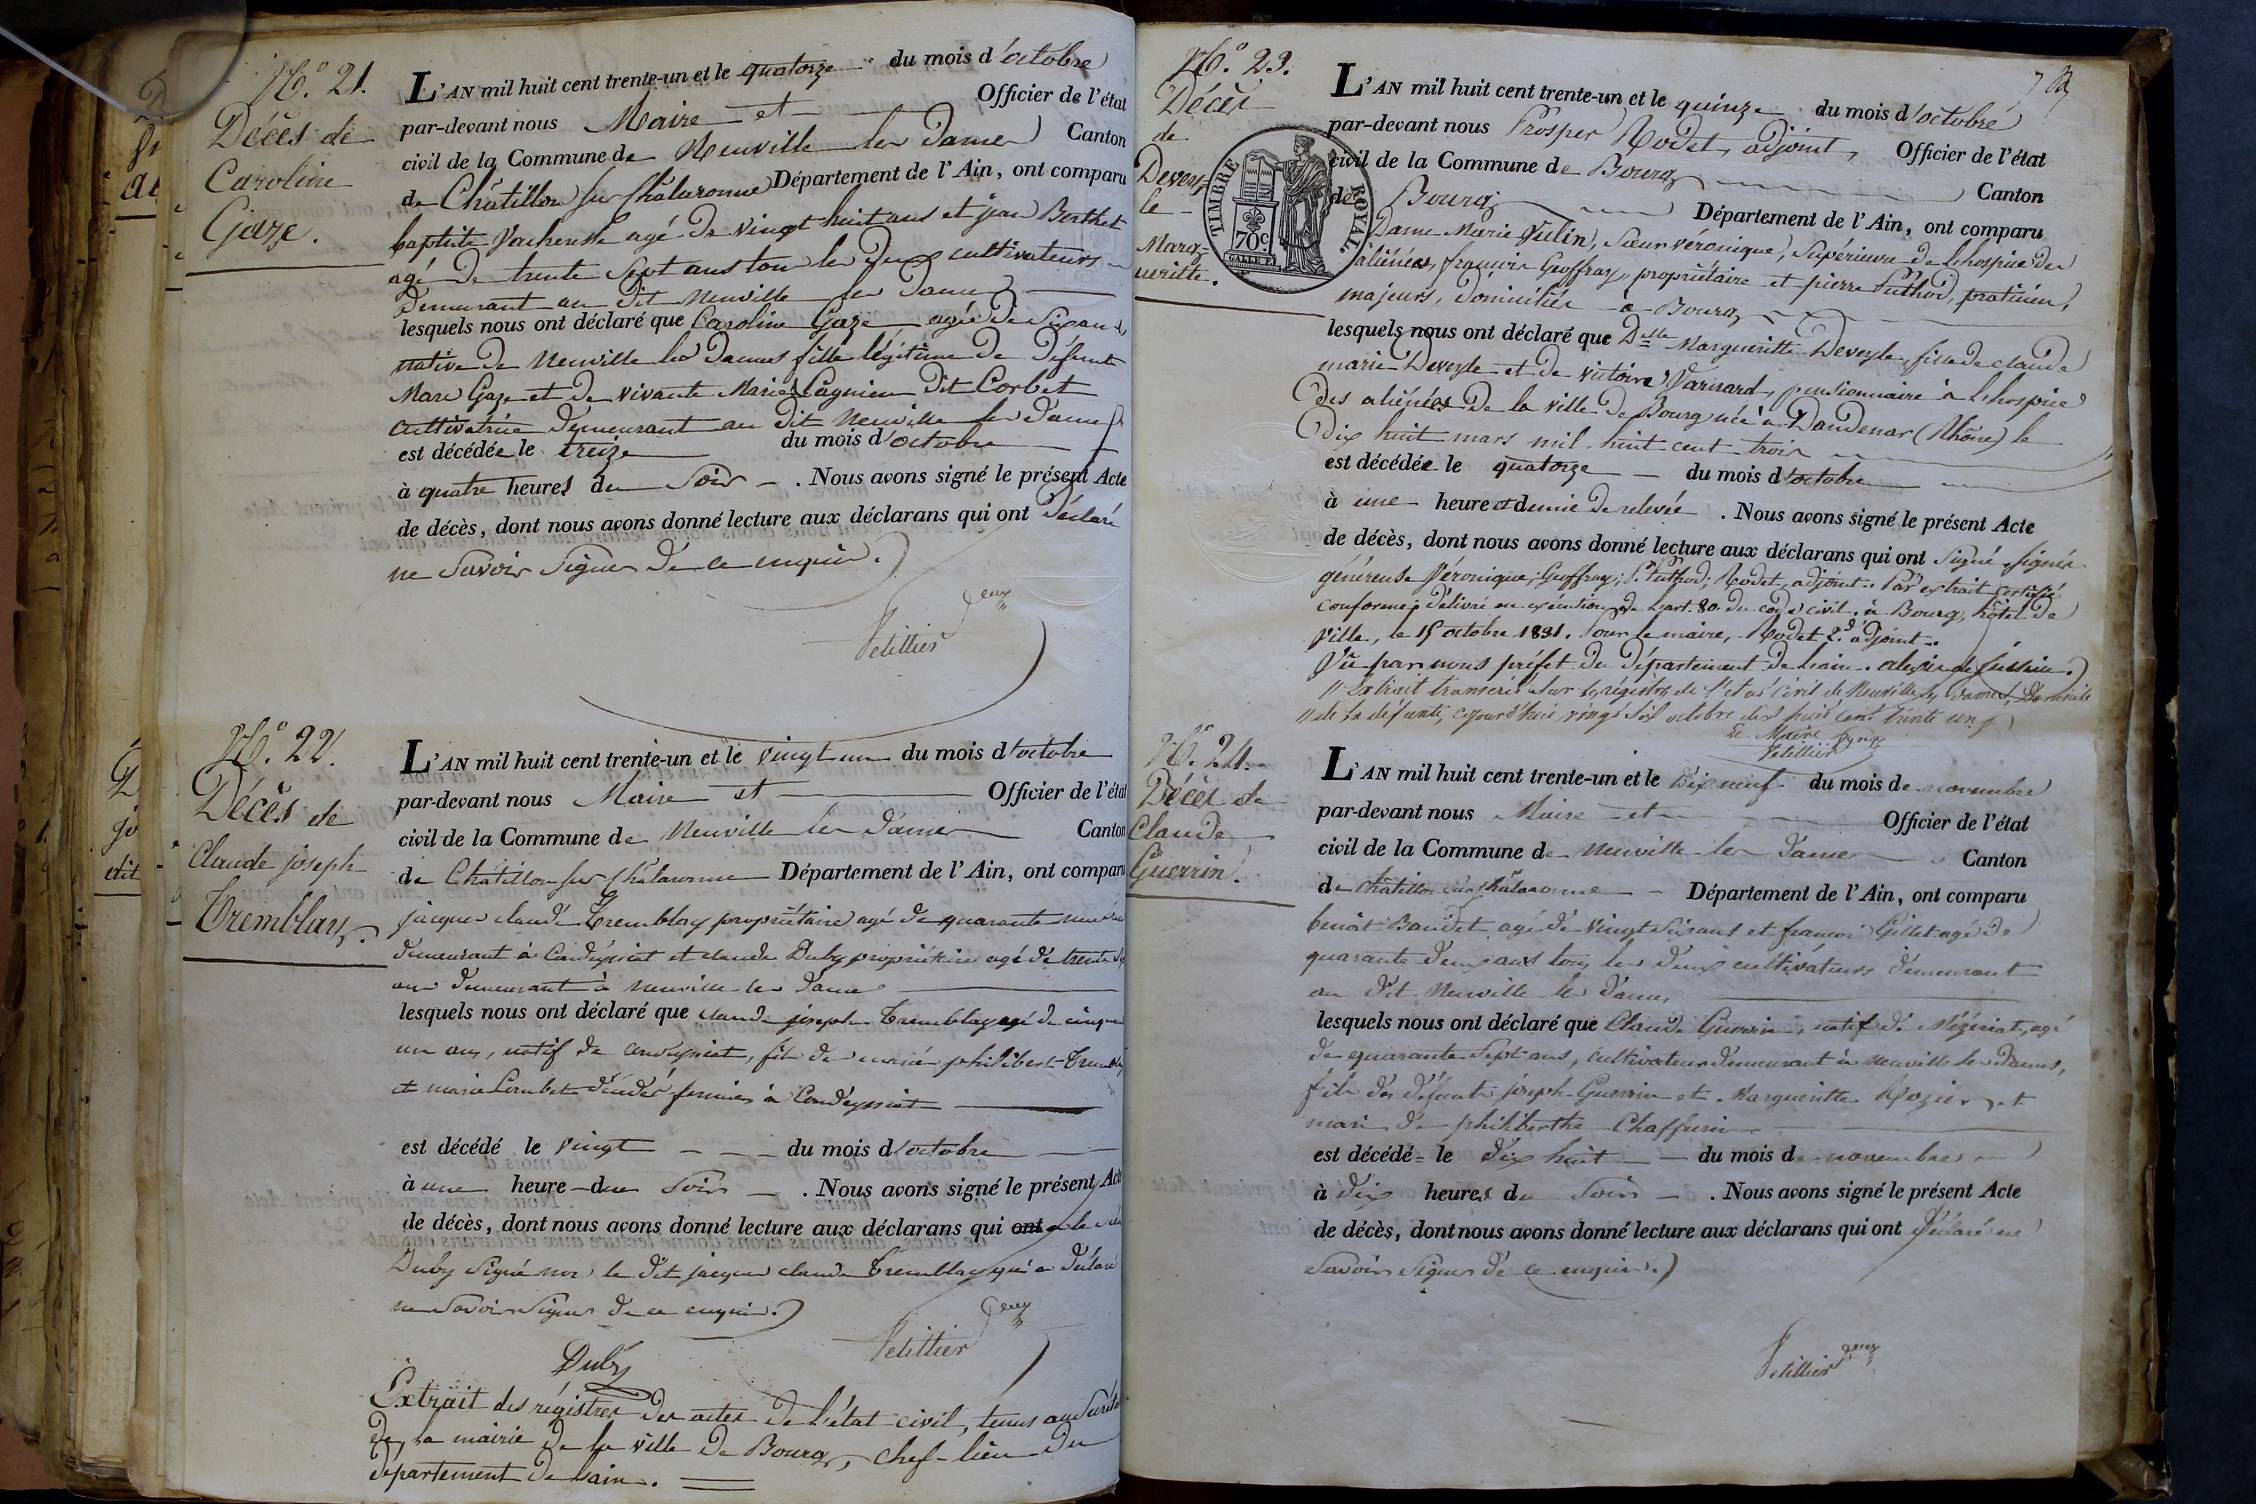 N.° 21.
Décès de
Caroline
Gaze.
L'AN mil huit cent trente-un et le quatorze du mois d'octobre
par-devant nous Maire et Officier de l'état
civil de la Commune de Neuville les Dames Canton
de Châtillon sur Chalaronne Département de l'Ain, ont comparu
baptiste agé de vingt huit ans et jean Berthet
agé de trente sept ans tous les deux cultivateurs
demeurant au dit Neuville les Dames
lesquels nous ont déclaré que Caroline Gaze agée de six ans
native de Neuville les Dames fille légitime de défunt
Marc Gaze et de vivante Marie Cagnieu dit Corbet
cultivatrice demeurant au dit Neuville les dames
est décédée le treize du mois d'octobre
à quatre heures du Soir. Nous avons signé le présent Acte
de décès, dont nous avons donné lecture aux déclarans qui ont déclaré
ne Savoir Signer de ce enquis.
Petillier
N.° 22.
Décès de
Claude joseph
Tremblay.
L'AN mil huit cent trente-un et le vingt un du mois d'octobre
par-devant nous Maire et Officier de l'état
civil de la Commune de Neuville les Dames Canton
de Châtillon sur Chalaronne Département de l'Ain, ont comparu
jacques claude Tremblay propriétaire agé de quarante
demeurant à Condeyssiat et claude Duby propriétaire agé de trente
ans demeurant à Neuville les Dames
lesquels nous ont déclaré que claude joseph Tremblay agé de cinquante
un ans, natif de Condeyssiat, fils de philibert Tremblay
et marie Loubet décédés fermiers à Condeyssiat
est décédé le vingt du mois d'octobre
à une heure du Soir. Nous avons signé le présent Acte
de décès, dont nous avons donné lecture aux déclarans qui ont
Duby Signé non le dit jacques claude Tremblay qui a déclaré
ne Savoir Signer de ce enquis.
Petillier
Duby
Extrait des régistres des actes de l'état civil, tenus au
de la mairie de la ville de Bourg, chef-lieu du
département de l'ain.
N.° 23.
Décès
de
Devey
le
Marg
ueritte.
TIMBRE ROYAL
70c
L'AN mil huit cent trente-un et le quinze du mois d'octobre
par-devant nous Prosper Rodet, adjoint, Officier de l'état
civil de la Commune de Bourg Canton
de Bourg Département de l'Ain, ont comparu
Dame Marie Julin, Sœur Véronique, Supérieure de l'hospice des
aliénées, françois Geoffray, propriétaire et pierre Puthod, praticien,
majeurs, domiciliés à Bourg
lesquels nous ont déclaré que Delle Margueritte Deveyle, fille de claude
marie Deveyle et de victoire Varinard, pensionnaire à l'hospice
des aliénées de la ville de Bourg née à Dandenas (Rhône) le
dix huit mars mil huit cent trois
est décédée le quatorze du mois d'octobre
à une heure et demie de relevée. Nous avons signé le présent Acte
de décès, dont nous avons donné lecture aux déclarans qui ont signé. Signés
généreuse Véronique; Geoffray; P. Puthod; Rodet, adjoint. Par extrait certifié
conforme; délivré en exécution de l'art. 80 du code civil. à Bourg, hôtel de
Ville, le 15 octobre 1831. Pour le maire, Rodet 2.d adjoint.
Vu par nous préfet du département de l'ain.
Extrait transcrit sur les régistres de l'état civil de Neuville les Dames, Domicile
de la défunte, cejourd'hui vingt six octobre dix huit cent trente un
Le Maire
Petillier
N.° 24.
Décès de
Claude
Guerrin.
L'AN mil huit cent trente-un et le dix neuf du mois de novembre
par-devant nous Maire et Officier de l'état
civil de la Commune de Neuville les Dames Canton
de Châtillon sur Chalaronne Département de l'Ain, ont comparu
benoît Baudet agé de vingt six ans et françois Gillet agé de
quarante deux ans tous les deux cultivateurs demeurant
au dit Neuville les Dames
lesquels nous ont déclaré que Claude Guerrin, natif de Mézériat, agé
de quarante sept ans, cultivateur demeurant à Neuville les Dames,
fils des défunts joseph Guerrin et Margueritte Rozier et
mari de philiberthe Chaffurin
est décédé le dix huit du mois de novembre
à dix heures du Soir. Nous avons signé le présent Acte
de décès, dont nous avons donné lecture aux déclarans qui ont déclaré ne
Savoir Signer de ce enquis.
Petillier